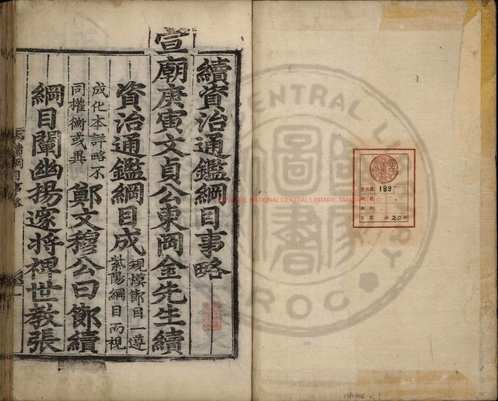 續資治通鑑綱目事略
宣廟庚寅文貞公東岡金先生續
資治通鑑綱目成 規模節目一遵
紫陽綱目而視
成化本詳略不
同權衡或異 鄭文穆公曰節續
綱目闡幽揚邃將裨世教張
189
20
NATIONAL CENTRAL LIBRARY
CENTRAL LIBRARY
ROC